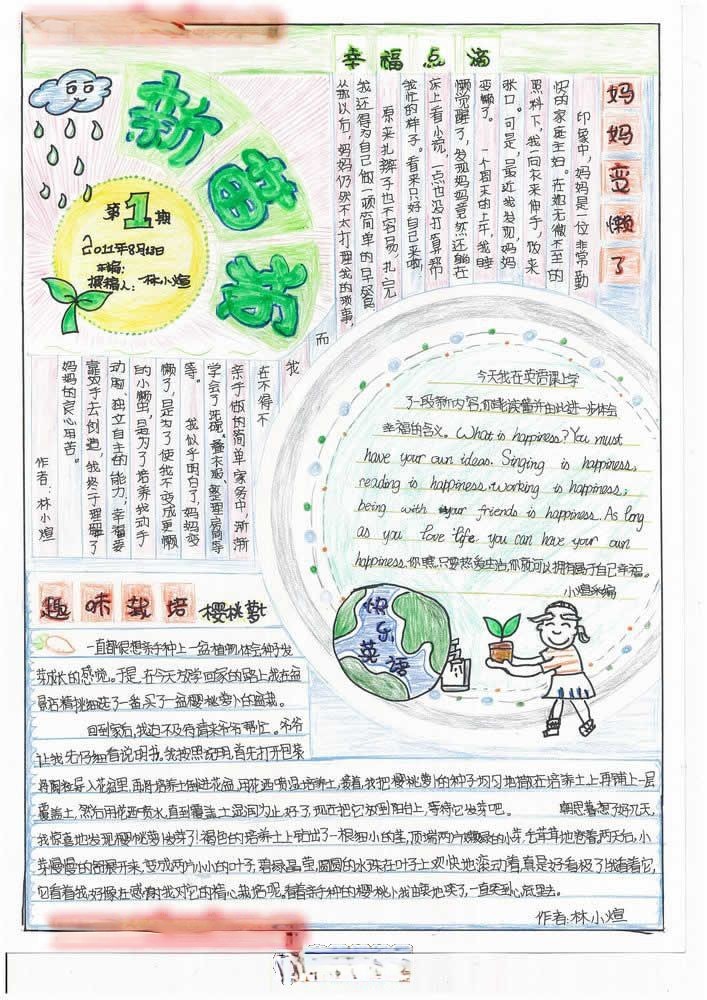 新苗芳
第1期
2011年8月13日
主编:
撰稿人:林小煊
幸福点滴
妈妈变懒了
印象中,妈妈是一位非常勤
快的家庭主妇。在她无微不至的
照料下,我一向衣来伸手,饭来
张口。可是,最近我发现妈妈
变懒了。 一个周末的上午,我睡
懒觉醒了,发现妈妈竟然还躺在
床上看小说,一点也没打算帮
我忙的样子。看来只好自己来啦,
原来扎辫子也不容易,扎完
我还得为自己做一顿简单的早餐。
从那以后,妈妈仍然不太打理我的琐事,
而
我
在不得不
亲手做的简单家务中,渐渐
学会了洗碗、叠衣服、整理房间等
等。 我似乎明白了,妈妈变
懒了,是为了使我不变成更懒
的小懒虫,是为了培养我动手
动脑、独立自主的能力,幸福要
靠双手去创造,我终于理解了
妈妈的良心用苦。
作者:林小煊
今天我在英语课上学
了一段新内容,你能读懂并由此进一步体会
幸福的含义。What is happiness? You must
have your own ideas. Singing is happiness,
reading is happiness. Working is happiness;
being with your friends is happiness. As long
as you love life you can have your own
happiness. 你瞧,只要热爱生活,你就可以拥有属于自己幸福。
小煊采编
快乐英语
趣味栽培樱桃萝卜
一直都很想亲手种上一盆植物,体会种子发
芽成长的感觉。于是,在今天放学回家的路上,我在盆
景店精挑细选了一番,买了一盆樱桃萝卜的盆栽。
回到家后,我迫不及待请来爷爷帮忙。爷爷
让我先仔细看说明书。我按照说明,首先打开包装
将陶粒导入花盆里,再将培养土倒进花盆,用花洒喷湿培养土,接着,我把樱桃萝卜的种子均匀地撒在培养土上,再铺上一层
覆盖土,然后用花洒喷水,直到覆盖土湿润为止。好了,现在把它放到阳台上,等待它发芽吧。 朝思暮想了好几天,
我惊喜地发现樱桃萝卜发芽了!褐色的培养土上钻出了一根细小的茎,顶端两片嫩绿的小芽,害羞地卷着。两天后,小
芽慢慢的舒展开来,变成两片小小的叶子,碧绿晶莹,圆圆的水珠在叶子上欢快地滚动着,真是好看极了!我看着它,
它看着我,好像在感谢我对它的精心栽培呢。看着亲手种的樱桃小我由衷地笑了,一直笑到心底里去。
作者:林小煊